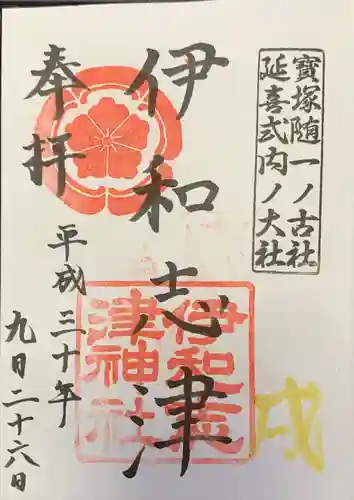 寶塚随一ノ古社
延喜式内ノ大社
伊和志津
奉拝
平成三十年
九月二十六日
伊和志
津神社
戌